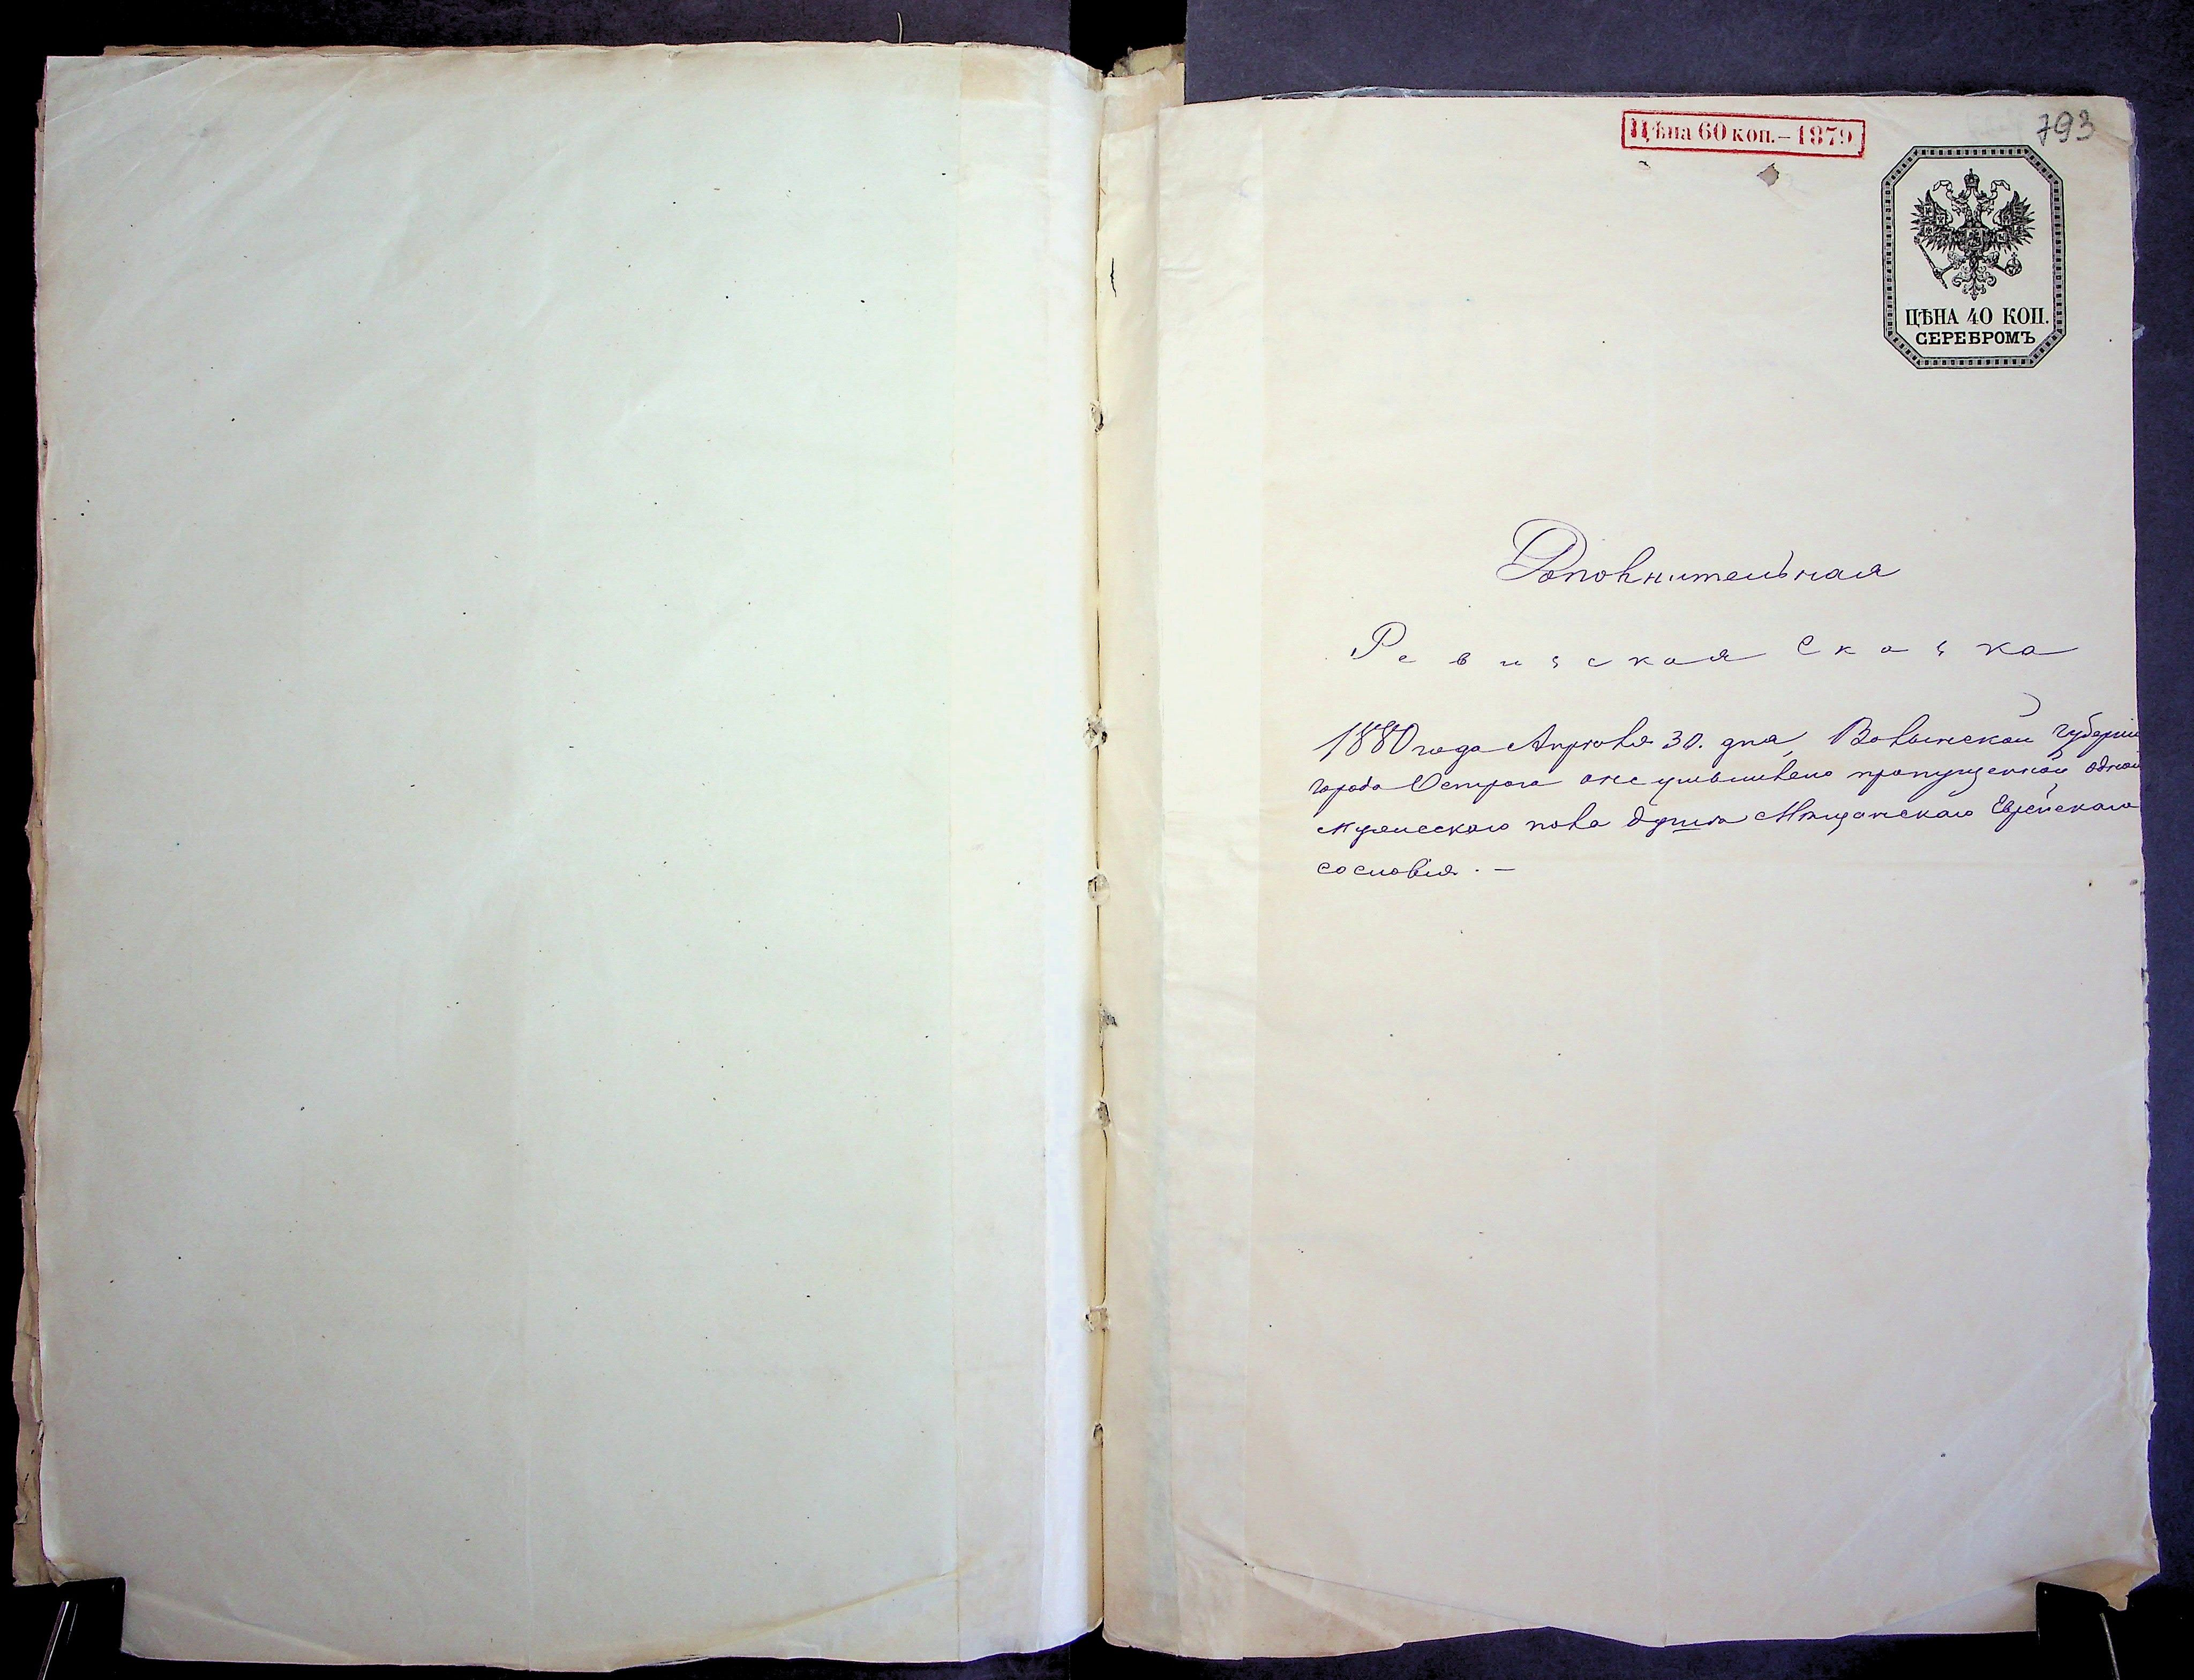 793
Цѣна 60 коп.–1879
ЦѢНА 40 КОП.
СЕРЕБРОМЪ
Дополнительная
Ревизская Сказка
1880 года Апрѣля 30. дня, Волынской губерніи
города Острога о пропущенной одной
мужескаго пола душѣ Мѣщанскаго Еврейскаго
сословія. –